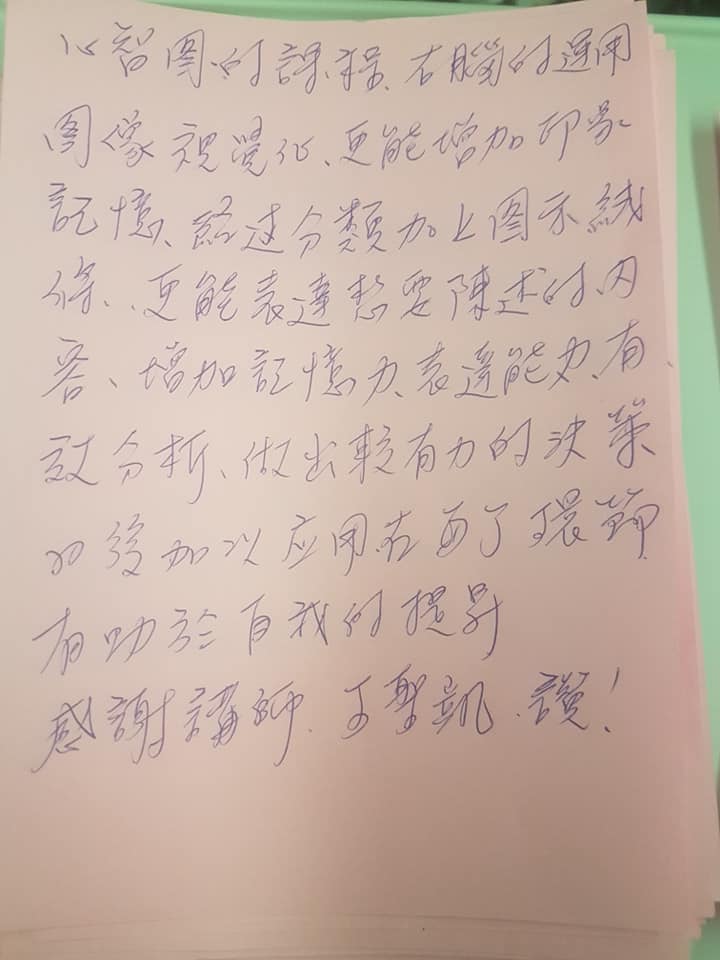 心智图的課程、右腦的運用
图像視覺化、更能增加印象
記憶、经过分類加上图示綫
條、更能表達想要陳述的内
容、增加記憶力、表達能力、有
效分析、做出較有力的決策
日後加以应用在每個環節
有助於自我的提昇
感謝講師、王聖凱、讚！